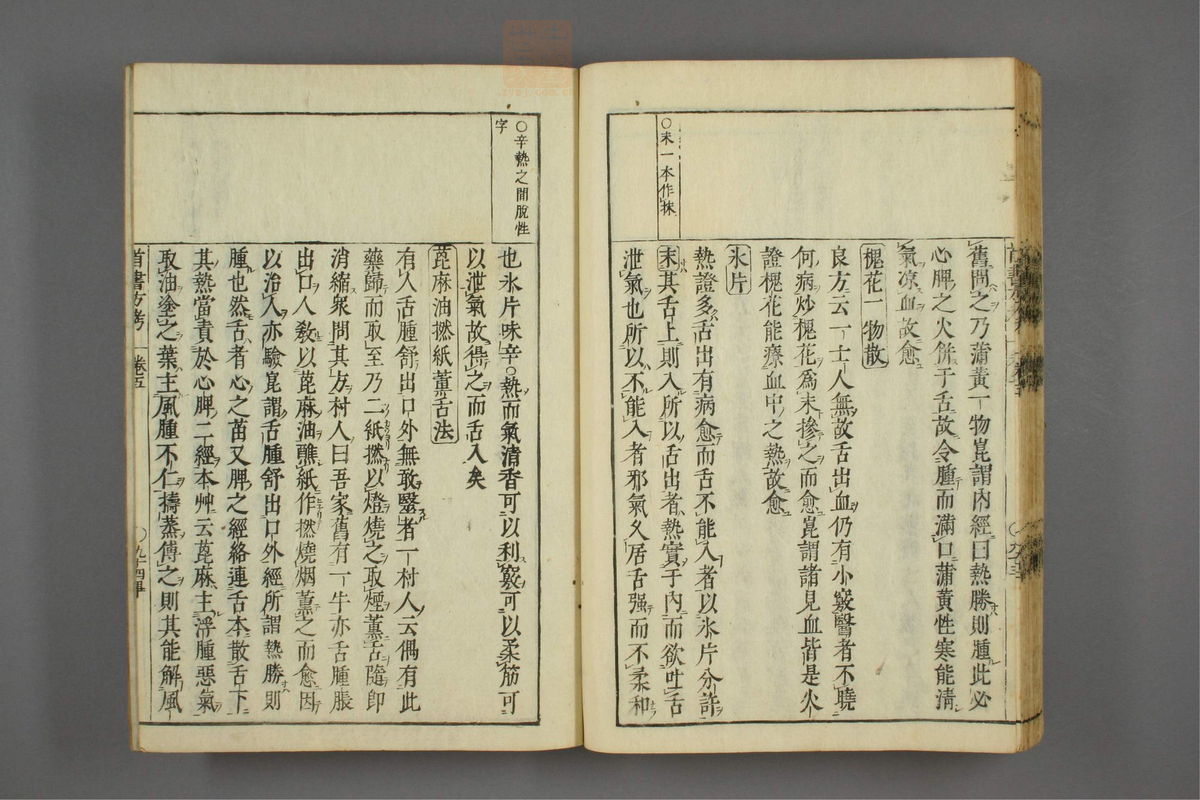 ○末一本作抹
舊問之乃蒲黃一物崑謂內經曰熱勝則腫此必
心脾之火併于舌故令腫而滿口蒲黃性寒能淸
氣凉血故愈
槐花一物散
良方云一士人無故舌出血仍有小竅醫者不曉
何病炒槐花爲末摻之而愈崑謂諸見血皆是火
證槐花能療血中之熱故愈
氷片
熱證多舌出有病愈而舌不能入者以氷片分許
末其舌上則入所以舌出者熱實于內而欲吐舌
泄氣也所以不能入者邪氣久居舌强而不柔和
○辛熱之間脫性
字
也氷片味辛○熱而氣清香可以利竅可以柔筋可
以泄氣故得之而舌入矣
萞麻油撚紙薰舌法
有人舌腫舒出口外無敢醫者一村人云偶有此
藥歸而取至乃二紙撚以燈燒之取煙薰舌隨即
消縮衆問其方村人曰吾家舊有一牛亦舌腫脹
出口人敎以萞麻油蘸紙作撚燒烟薰之而愈因
以治人亦驗崑謂舌腫舒出口外經所謂熱勝則
腫也然舌者心之苗又脾之經絡連舌本散舌下
其熱當責於心脾二經本艸云萞麻主浮腫惡氣
取油塗之葉主風腫不仁擣蒸傅之則其能解風
首書方考 卷五